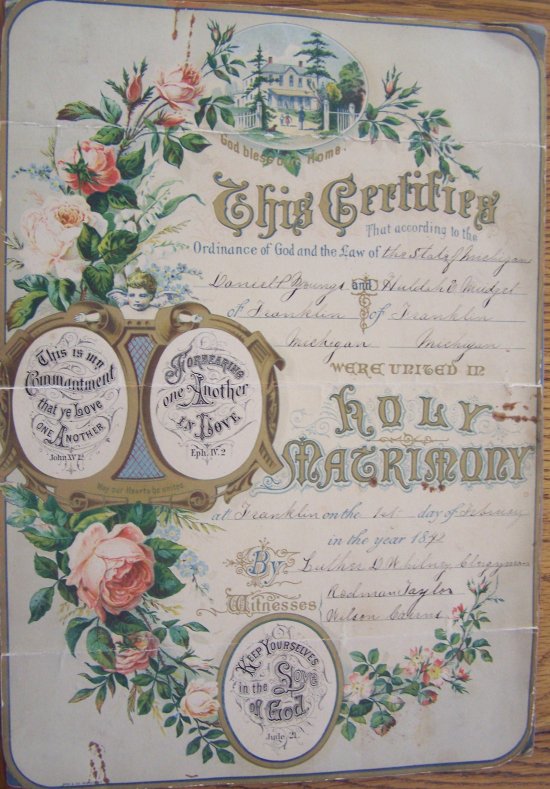 God bless our Home.
This Certifies
That according to the
Ordinance of God and the Law of the State of Michigan
Daniel P Youngs and Huldah E Mudget
of Franklin of Franklin
Michigan Michigan
WERE UNITED IN
HOLY
MATRIMONY
This is my
Commantment
that ye Love
ONE ANOTHER
John XV. 12.
FORBEARING
one Another
IN Love
Eph. IV. 2
May our Hearts be united.
at Franklin on the 1st day of
in the year 18
By Luther D Whitney Clergyman
Witnesses
Rodman Taylor
Wilson
KEEP YOURSELVES
in the Love
of God
Jude 21.